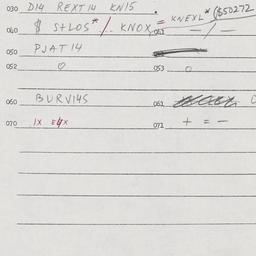 030 D14 REXT14 KN15
040 $ S+LOS* /. KNOX, = KNEXL* ($50272
041 — / —
050 PJAT14
052 0 053 0
060 BURV14S 061
070 1X E4X 071 + = —